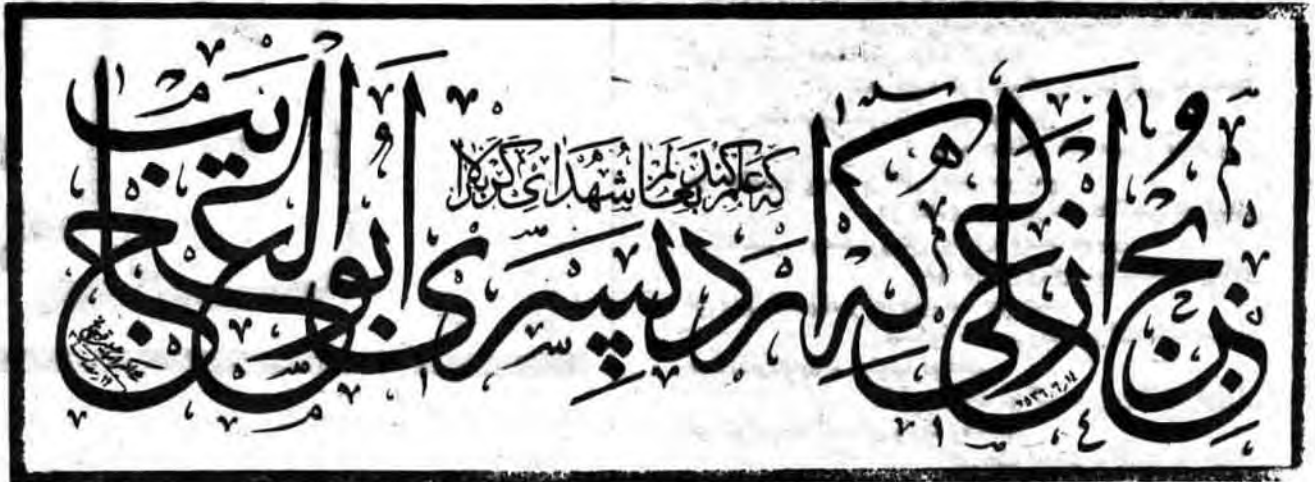 بجز از علی که آرد پسری ابوالعجایب
که علم کند بعالم شهدای کربلا را